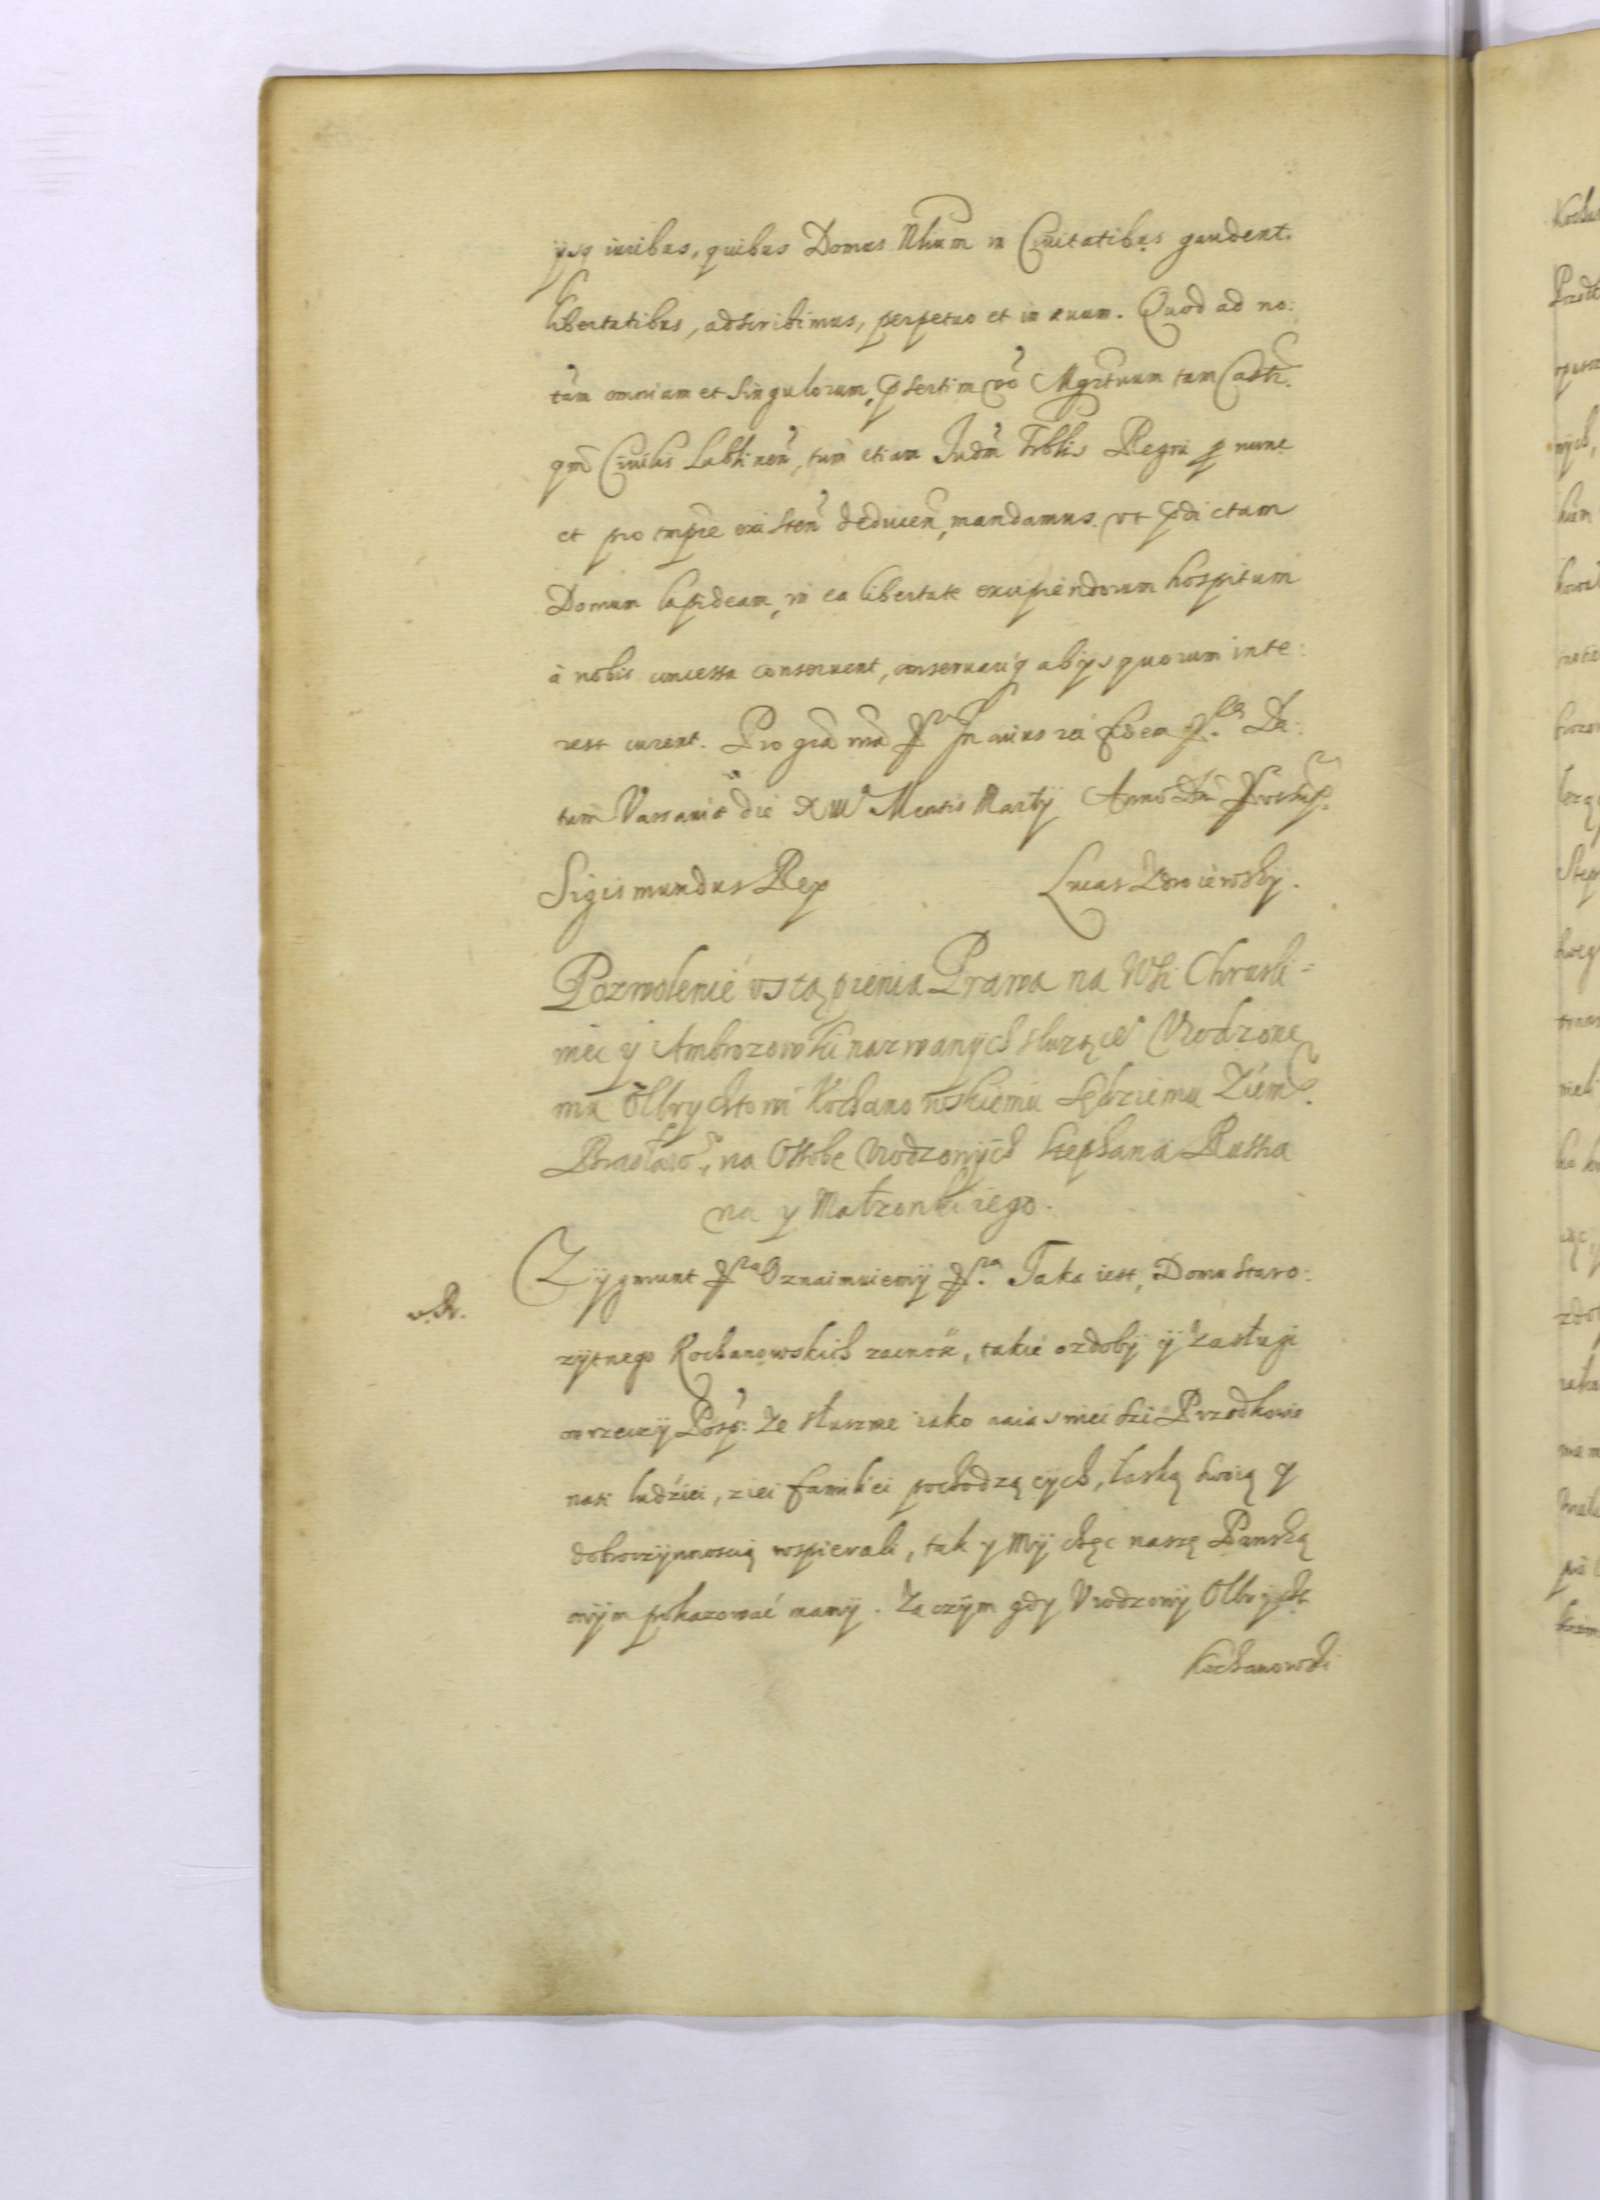 ijsq iuribus, quibus Domus Nlium in Ciuitatibus gaudent.
libertatibus, adscribimus, perpetuo et in euum. Quod ad no:
tam omnium et singulorum, psertim vo Mgrtuum tam Castr.
qm Ciuilis Lublinen, tum etiam Iudm Trblis Regni p nunc
et pro tmpre existen deducen, mandamus. vt pdictam
Domum lapideam, in ea libertate excipiendorum hospitum
à nobis concessa conseruent, conseruariq ab ijs quorum inte:
rest curent. Pro gra nra In cuius rei fidem Da:
tum Varsauiæ die Mensis Martij Anno Dni
Sigismundus Rex
Lucas
Pozwolenie vstąpienia Prawa na Wsi Chrusli=
niec y Ambrozowki nazwanych słuzące Vrodzone
mu Olbrychtowi Kochanowskiemu Sędziemu Ziem.
Bracław, na Ossobe Vrodzonych Stephana Russa
na y Małzonki iego.
Zygmunt Oznaimuiemy Taka iest, Domu staro:
v. R.
zytnego Kochanowskich zacnosc, takie ozdoby y zasługi
w rzeczy Posp: ze słusznie iako naiasnieiszi Przodkowie
nasi ludziei, z iei familiei pochodzących, łaską swoią y
dobroczynnoscią wspierali, tak y My chęc naszę Panską
onym pokazowac mamy. Za czym gdy Vrodzony Olbrycht
Kochanowski